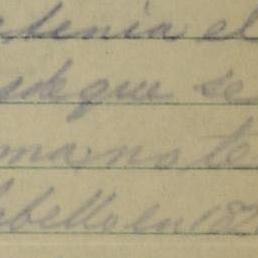 tenia el
de que se
mano te
bello en 18